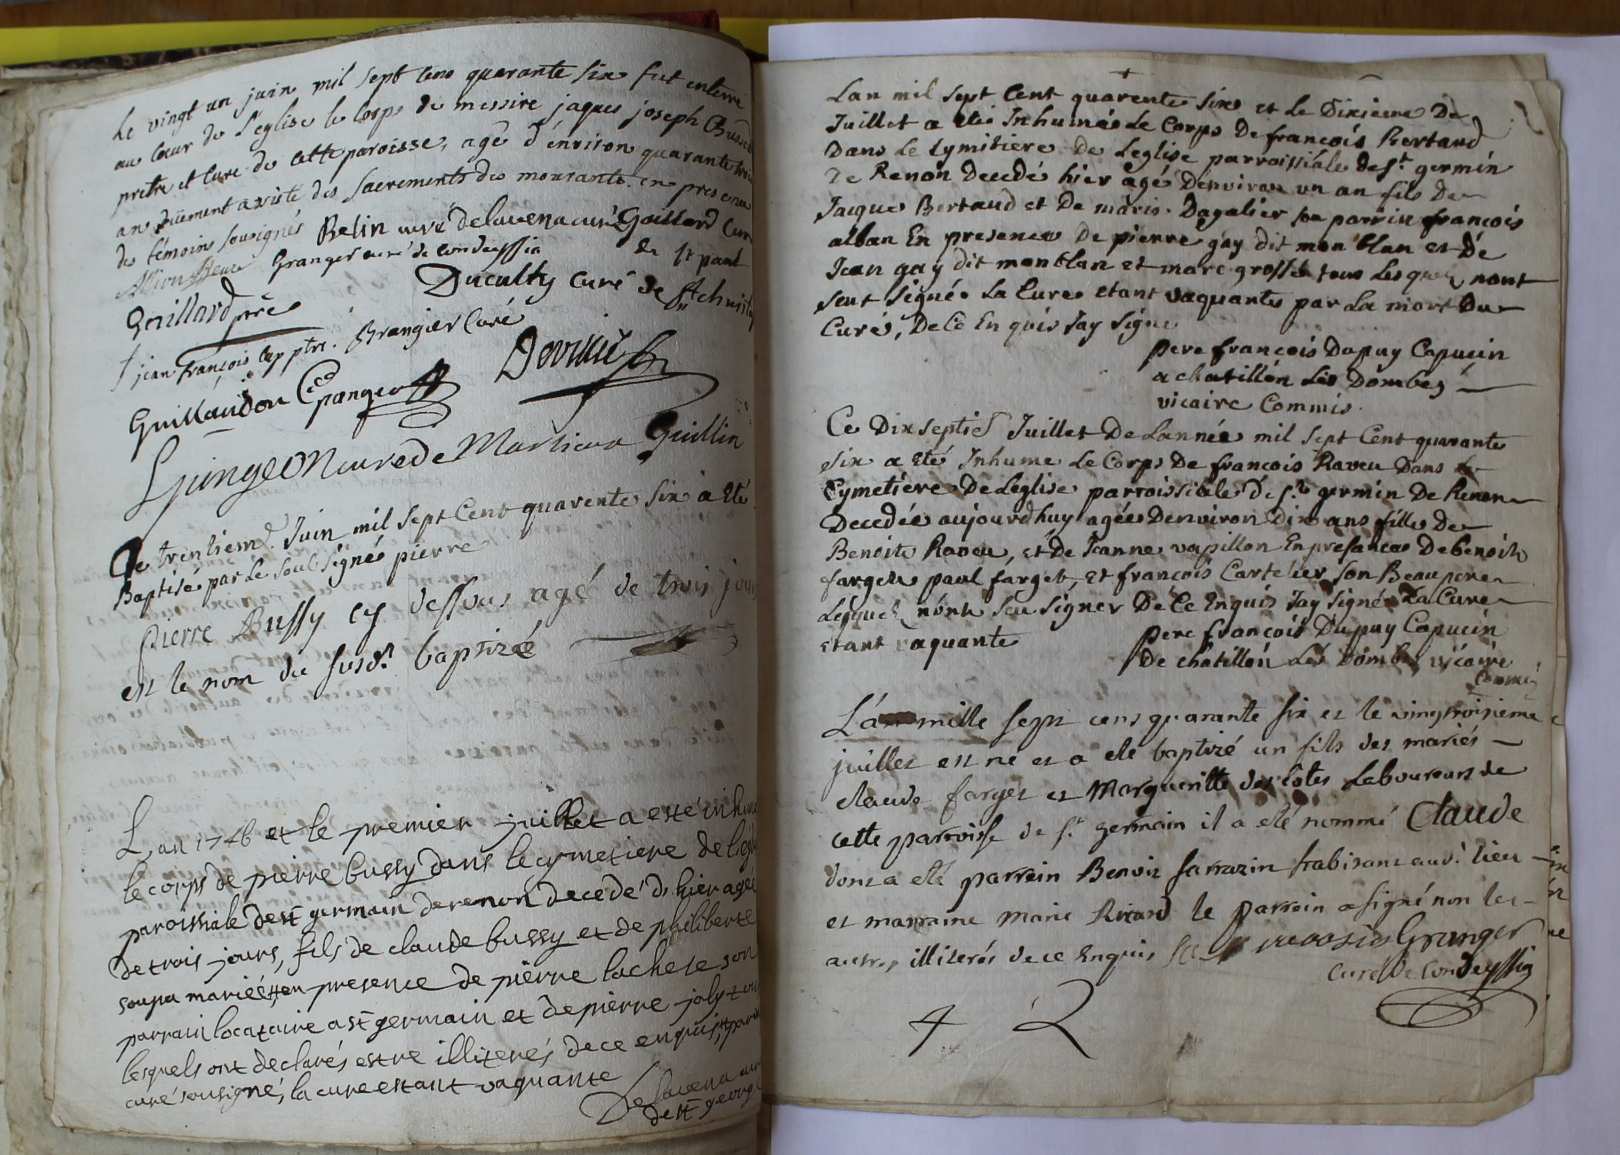 Le vingt un juin mil sept cens quarante six fut enterré
au cœur de l'eglise le corps de messire jaques joseph
pretre et curé de cette paroisse, agé d'environ quarante trois
an duement assisté des sacrements des mourants en presence
des témoins sousignés Belin curé delavena curé Gaillard Curé
Granger curé de Condeyssia de st paul
Duculty curé de st christ
Gaillard ptre
† jean françois ptre. Brangier Curé
Guillaudon
Curé de Marlieux Guillin
Ce trentiem Juin mil sept Cent quarente six a Eté
Baptisé par Le sousigné pierre
pierre Bussy cy dessous agé de trois jours
est le nom du susdt baptizé
L'an 1746 et le premier juillet a esté inhumé
le corps de pierre bussy dans le cymetiere de l'eglise
paroissiale de st germain de renon decedé d'hier agé
de trois jours, fils de claude bussy et de philiberte
soupa mariés, en presence de pierre lachese son
parrain locataire a st germain et de pierre joly
lesquels ont declarés estre illiterés de ce enquis, par
curé sousigné, la cure estant vaquante
Delavena curé
de st george
Lan mil sept Cent quarente six et Le Dixieme De
Juillet a eté Inhumée Le Corps De françois Bertaud
Dans Le Cymitiere De Leglise parroissialle de st germin
De Renon Decedé hier agé Denviron un an fils De
Jacque Bertaud et De marie Dagalier son parrin françois
alban En presence De pierre gay dit monblan et De
Jean gay dit monblan et marc grosse tous Lesquels nont
seut signés La Cure etant vaquante par La mort Du
Curé, De Ce Enquis Jay signé
pere françois Dupuy Capucin
a chatillon Les Dombes
vicaire Commis
Ce Dix septie Juillet De Lannée mil sept Cent quarante
six a Eté Inhume Le Corps De françois Raveu Dans Le
Cymetiere De Leglise parroissialle De st germin De Renon
Decedée aujourdhuy agée Denviron Dix ans fille De
Benoite Raveu, et De Jeanne vapillon En presance De benoit
farget paul farget, et françois Cartelier son Beaupere
Lesquel nont seu signer De Ce Enquis Jay signé La Cure
etant vaquante
pere françois Dupuy Capucin
De chatillon Les Dombes vicaire
Commis
L'an mille sept cens quarante six et le vingtroisieme
juillet est né et a eté baptizé un fils des mariés
claude farget et Marguerite descotes Laboureurs de
cette parroisse de st germain il a eté nommé Claude
dont a eté parrein Benoit sarrazin habitant aud. lieu
et marraine marie Ricard le parrein a signé non les
autres illiterés de ce Enquis Granger
curé De Condeyssia
4 2